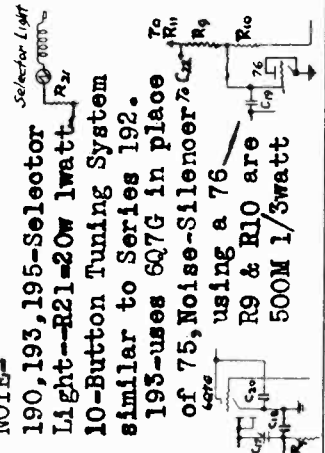 NOTE-
190,193,195-Selector
Light--R21-20w 1watt
10-Button Tuning System
similar to Series 192.
193-uses 6Q7G in place
of 75, Noise-Silencer
using a 76
R9 & R10 are
500M 1/3watt
Selector Light
R21
To
R11
R9
R10
To C22
76
C19
6Q7G
C20
C17
C18